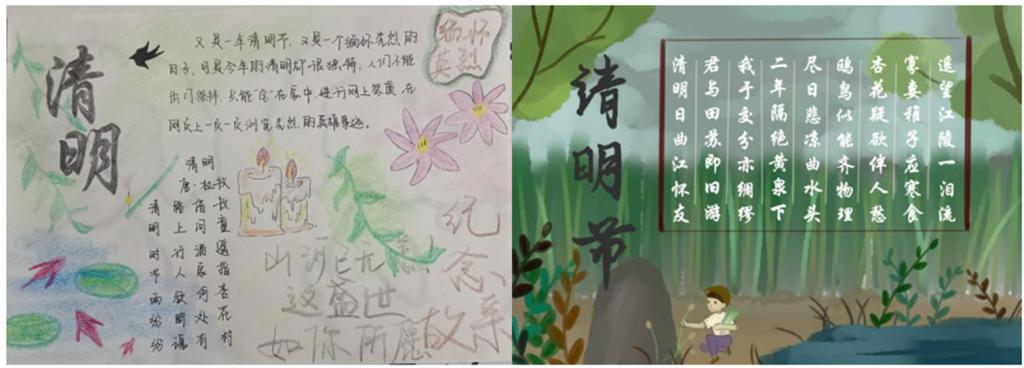 清明
又是一年清明节,又是一个缅怀先烈的
日子,可是今年的清明却很独特,人们不能
出门祭拜,只能“宅”在家中,进行网上祭奠,在
网页上一页一页浏览先烈的英雄事迹。
缅怀
英烈
清明
唐·杜牧
清明时节雨纷纷
路上行人欲断魂
借问酒家何处有
牧童遥指杏花村
山河已无恙
这盛世
如你所愿
纪念故亲
清明节
清明日曲江怀友
君与田苏即旧游
我于交分亦绸缪
二年隔绝黄泉下
尽日悲凉曲水头
鸥鸟似能齐物理
杏花疑欲伴人愁
寡妻稚子应寒食
遥望江陵一泪流